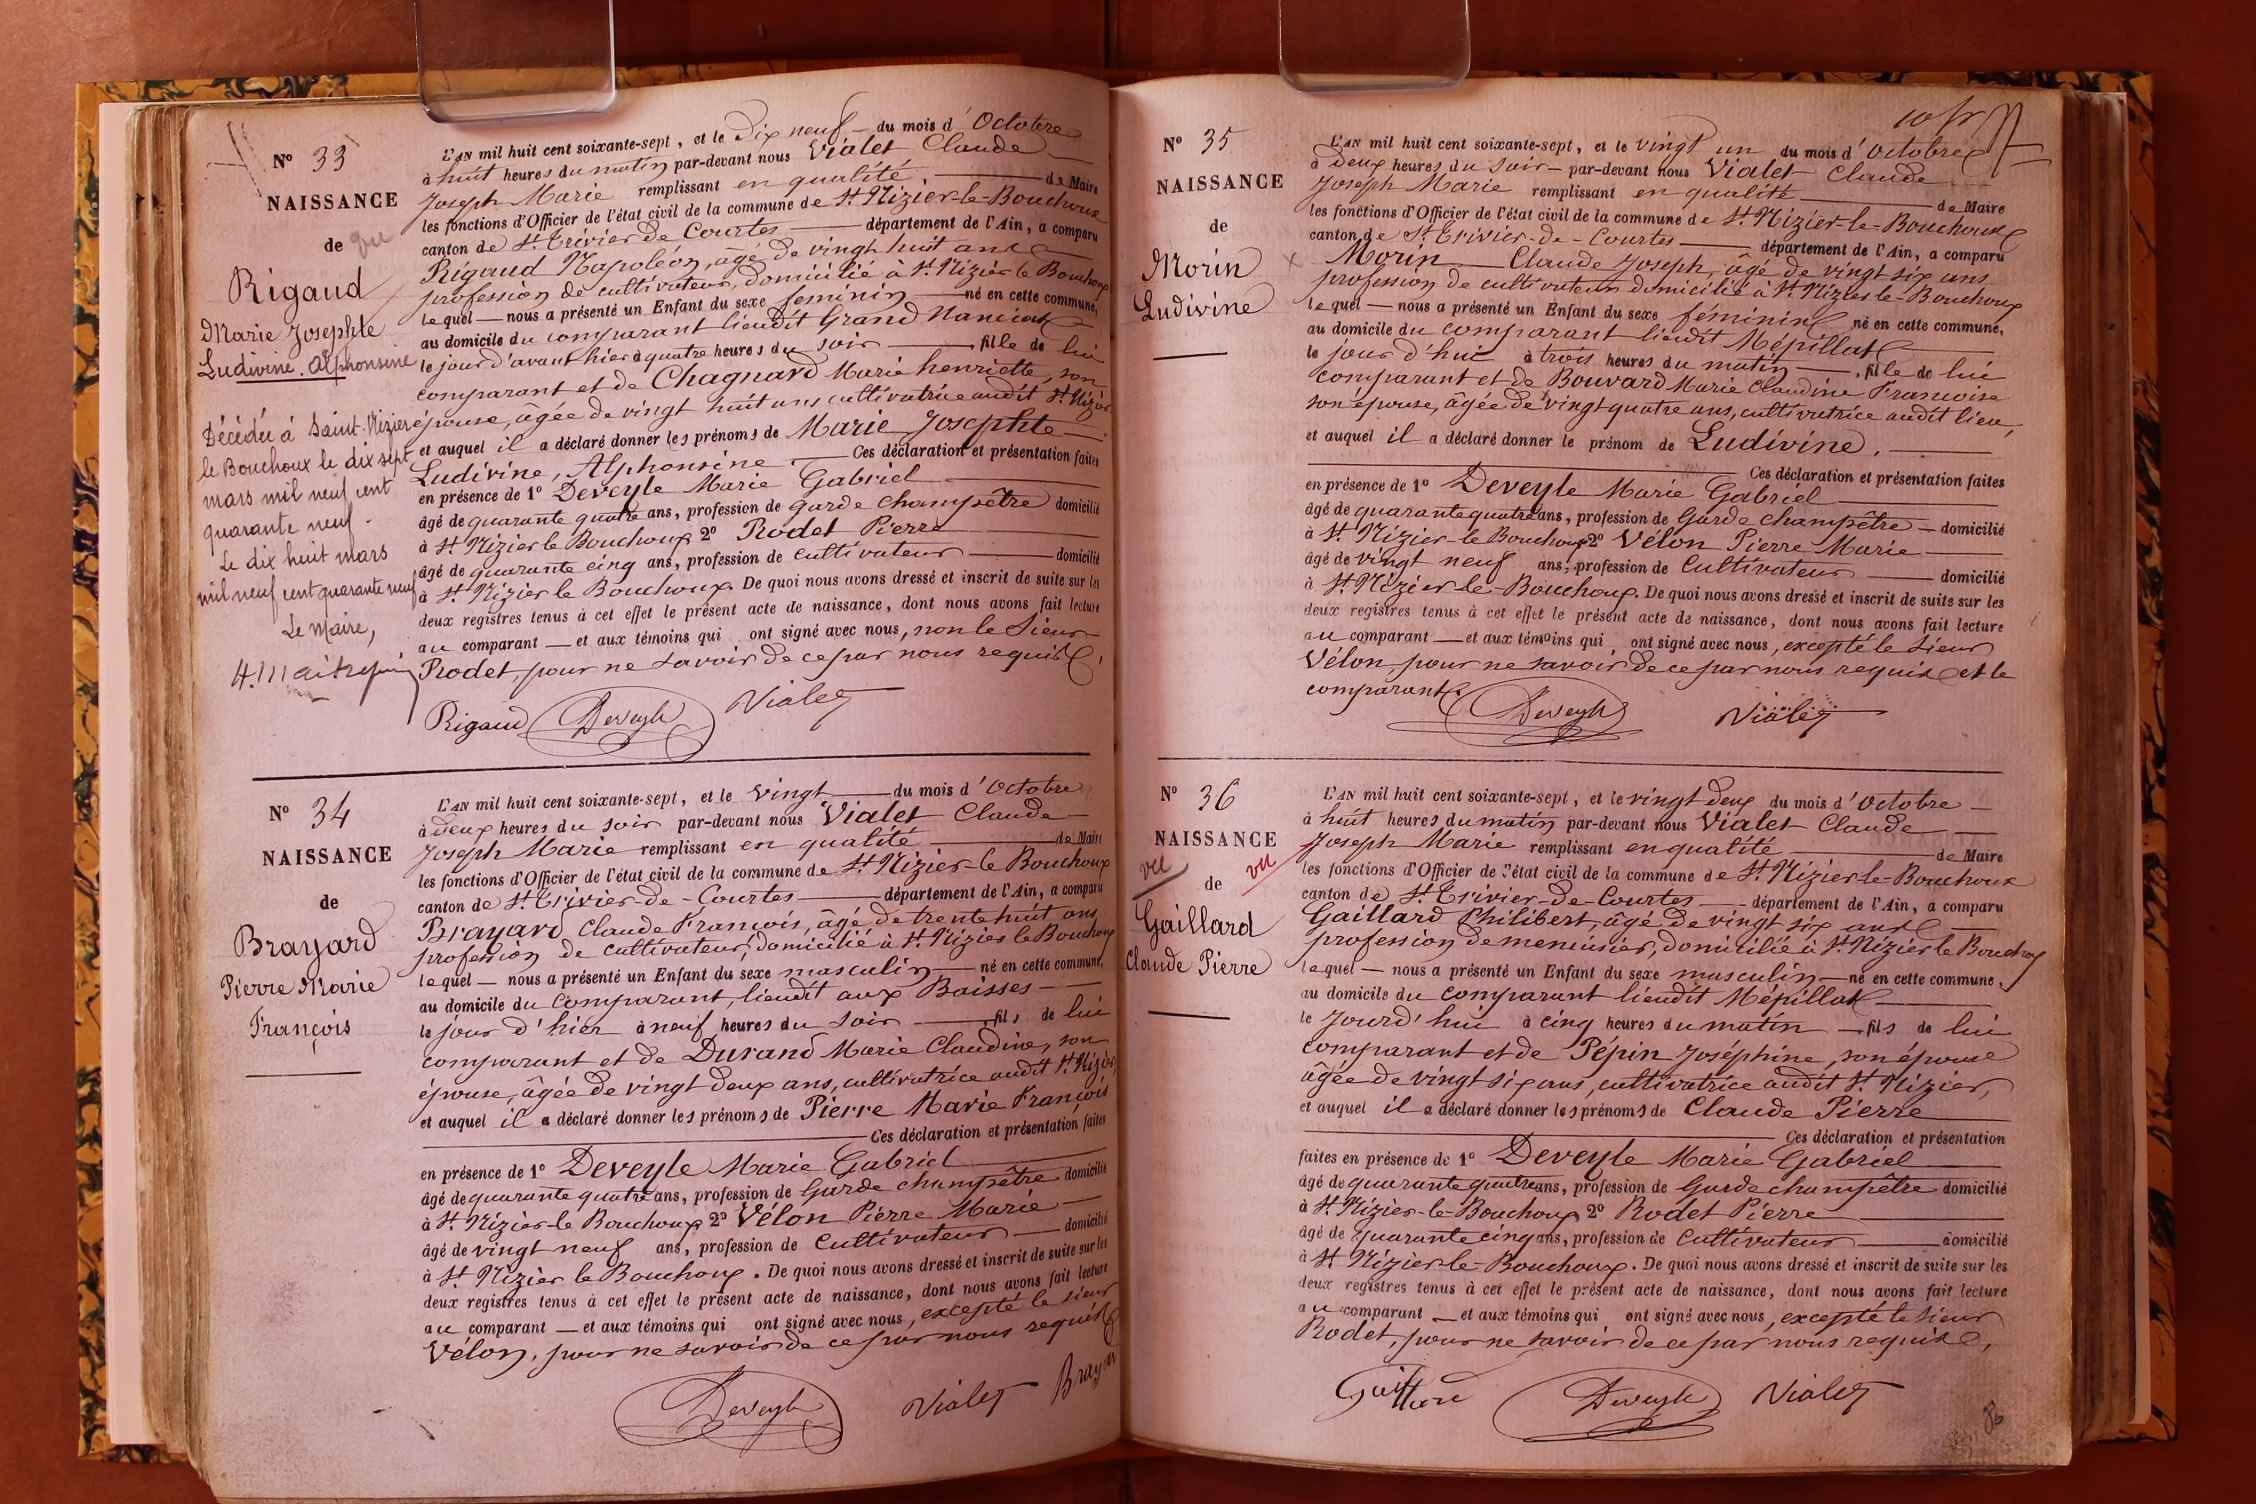 N° 33
NAISSANCE
de vu
Rigaud
Marie Josephte
Ludivine. Alphonsine
Décédée à Saint-Nizier
le Bouchoux le dix sept
mars mil neuf cent
quarante neuf.
Le dix huit mars
mil neuf cent quarante neuf
Le Maire,
L'AN mil huit cent soixante-sept, et le Dix neuf du mois d'Octobre
à huit heures du matin par-devant nous Vialet Claude
Joseph Marie remplissant en qualité de Maire
les fonctions d'Officier de l'état civil de la commune de St Nizier-le-Bouchoux
canton de St Trivier de Courtes département de l'Ain, a comparu
Rigaud Napoléon, âgé de vingt huit ans
profession de cultivateur, domicilié à St Nizier le Bouchoux
lequel nous a présenté un Enfant du sexe feminin né en cette commune,
au domicile du comparant lieudit Grand Naniat
le jour d'avant hier à quatre heures du soir fille de lui
comparant et de Chagnard Marie henriette, son
épouse, âgée de vingt huit ans cultivatrice audit St Nizier
et auquel il a déclaré donner les prénoms de Marie Josephte
Ludivine, Alphonsine. Ces déclaration et présentation faites
en présence de 1° Deveyle Marie Gabriel
âgé de quarante quatre ans, profession de garde champêtre domicilié
à St Nizier le Bouchoux 2° Rodet Pierre
âgé de quarante cinq ans, profession de cultivateur domicilié
à St Nizier le Bouchoux. De quoi nous avons dressé et inscrit de suite sur les
deux registres tenus à cet effet le présent acte de naissance, dont nous avons fait lecture
au comparant et aux témoins qui ont signé avec nous, non le Sieur
Rodet, pour ne savoir de ce par nous requis.
Rigaud Deveyle Vialet
N° 34
NAISSANCE
de
Brayard
Pierre Marie
François
L'AN mil huit cent soixante-sept, et le vingt du mois d'Octobre
à deux heures du soir par-devant nous Vialet Claude
Joseph Marie remplissant en qualité de Maire
les fonctions d'Officier de l'état civil de la commune de St Nizier-le Bouchoux
canton de St Trivier-de-Courtes département de l'Ain, a comparu
Brayard Claude François, âgé de trente huit ans
profession de cultivateur, domicilié à St Nizier le Bouchoux
lequel nous a présenté un Enfant du sexe masculin né en cette commune,
au domicile du comparant, lieudit aux Baisses
le jour d'hier à neuf heures du soir fils de lui
comparant et de Durand Marie Claudine, son
épouse, âgée de vingt deux ans, cultivatrice audit St Nizier,
et auquel il a déclaré donner les prénoms de Pierre Marie François
Ces déclaration et présentation faites
en présence de 1° Deveyle Marie Gabriel
âgé de quarante quatre ans, profession de Garde champêtre domicilié
à St Nizier-le Bouchoux 2° Vélon Pierre Marie
âgé de vingt neuf ans, profession de Cultivateur domicilié
à St Nizier le Bouchoux. De quoi nous avons dressé et inscrit de suite sur les
deux registres tenus à cet effet le présent acte de naissance, dont nous avons fait lecture
au comparant et aux témoins qui ont signé avec nous, excepté le sieur
Vélon, pour ne savoir de ce par nous requis
Deveyle Vialet Brayard
N° 35
NAISSANCE
de
Morin
Ludivine
L'AN mil huit cent soixante-sept, et le vingt un du mois d'Octobre
à Deux heures du soir par-devant nous Vialet Claude
Joseph Marie remplissant en qualité de Maire
les fonctions d'Officier de l'état civil de la commune de St Nizier-le-Bouchoux
canton de St Trivier-de-Courtes département de l'Ain, a comparu
Morin Claude Joseph, âgé de vingt six ans
profession de cultivateur domicilié à St Nizier-le-Bouchoux
lequel nous a présenté un Enfant du sexe feminin né en cette commune,
au domicile du comparant lieudit Mépillat
le jour d'hui à trois heures du matin, fille de lui
comparant et de Bouvard Marie Claudine Francoise
son épouse, âgée de vingt quatre ans, cultivatrice audit lieu,
et auquel il a déclaré donner le prénom de Ludivine.
Ces déclaration et présentation faites
en présence de 1° Deveyle Marie Gabriel
âgé de quarante quatre ans, profession de Garde champêtre domicilié
à St Nizier-le Bouchoux 2° Vélon Pierre Marie
âgé de vingt neuf ans, profession de Cultivateur domicilié
à St Nizier-le-Bouchoux. De quoi nous avons dressé et inscrit de suite sur les
deux registres tenus à cet effet le présent acte de naissance, dont nous avons fait lecture
au comparant et aux témoins qui ont signé avec nous, excepté le Sieur
Vélon pour ne savoir de ce par nous requis et le
comparant.
Deveyle Vialet
N° 36
NAISSANCE
vu de vu
Gaillard
Claude Pierre
L'AN mil huit cent soixante-sept, et le vingt deux du mois d'Octobre
à huit heures du matin par-devant nous Vialet Claude
Joseph Marie remplissant en qualité de Maire
les fonctions d'Officier de l'état civil de la commune de St Nizier-le-Bouchoux
canton de St Trivier-de-Courtes département de l'Ain, a comparu
Gaillard Philibert, âgé de vingt six ans
profession de menuisier, domicilié à St Nizier le Bouchoux
lequel nous a présenté un Enfant du sexe masculin né en cette commune,
au domicile du comparant lieudit Mépillat
le Jourd'hui à cinq heures du matin fils de lui
comparant et de Pépin Joséphine, son épouse
âgée de vingt six ans, cultivatrice audit St Nizier,
et auquel il a déclaré donner les prénoms de Claude Pierre
Ces déclaration et présentation
faites en présence de 1° Deveyle Marie Gabriel
âgé de quarante quatre ans, profession de Garde champêtre domicilié
à St Nizier-le-Bouchoux 2° Rodet Pierre
âgé de quarante cinq ans, profession de Cultivateur domicilié
à St Nizier-le-Bouchoux. De quoi nous avons dressé et inscrit de suite sur les
deux registres tenus à cet effet le présent acte de naissance, dont nous avons fait lecture
au comparant et aux témoins qui ont signé avec nous, excepté le Sieur
Rodet, pour ne savoir de ce par nous requis,
Gaillard Deveyle Vialet